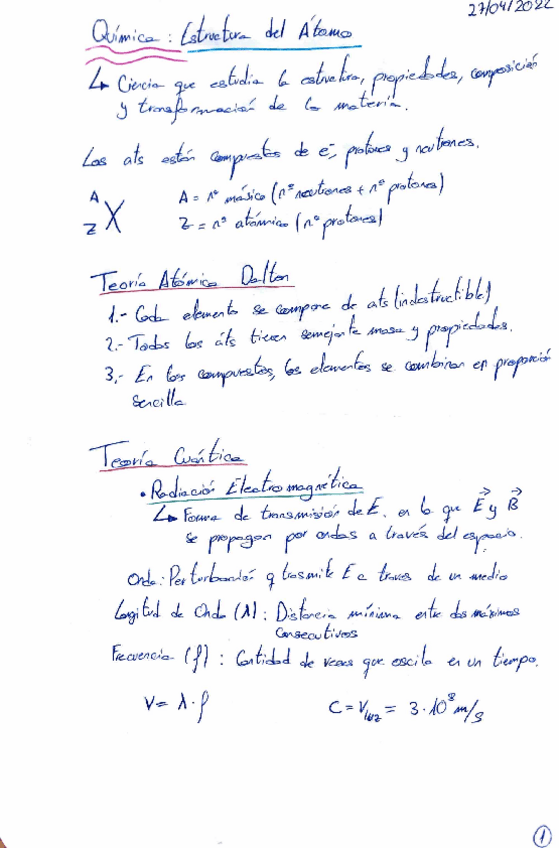 27/04/2022
Química: Estructura del Átomo
↳ Ciencia que estudia la estructura, propiedades, composición
y transformación de la materia.
Los ats están compuestos de e⁻, protones y neutrones.
A
Z X
A = nº másico (nº neutrones + nº protones)
Z = nº atómico (nº protones)
Teoría Atómica Dalton
1.- Cada elemento se compone de ats (indestructible)
2.- Todos los áts tienen semejante masa y propiedades.
3.- En los compuestos, los elementos se combinan en proporción
sencilla
Teoría Cuántica
• Radiación Electromagnética
↳ Forma de transmisión de E. en la que E⃗ y B⃗
se propagan por ondas a través del espacio.
Onda: Perturbación q trasmite E a traves de un medio
Longitud de Onda (λ): Distancia mínima entre dos máximos
consecutivos
Frecuencia (f): Cantidad de veces que oscila en un tiempo.
V = λ · f
C = V_luz = 3·10⁸ m/s
1